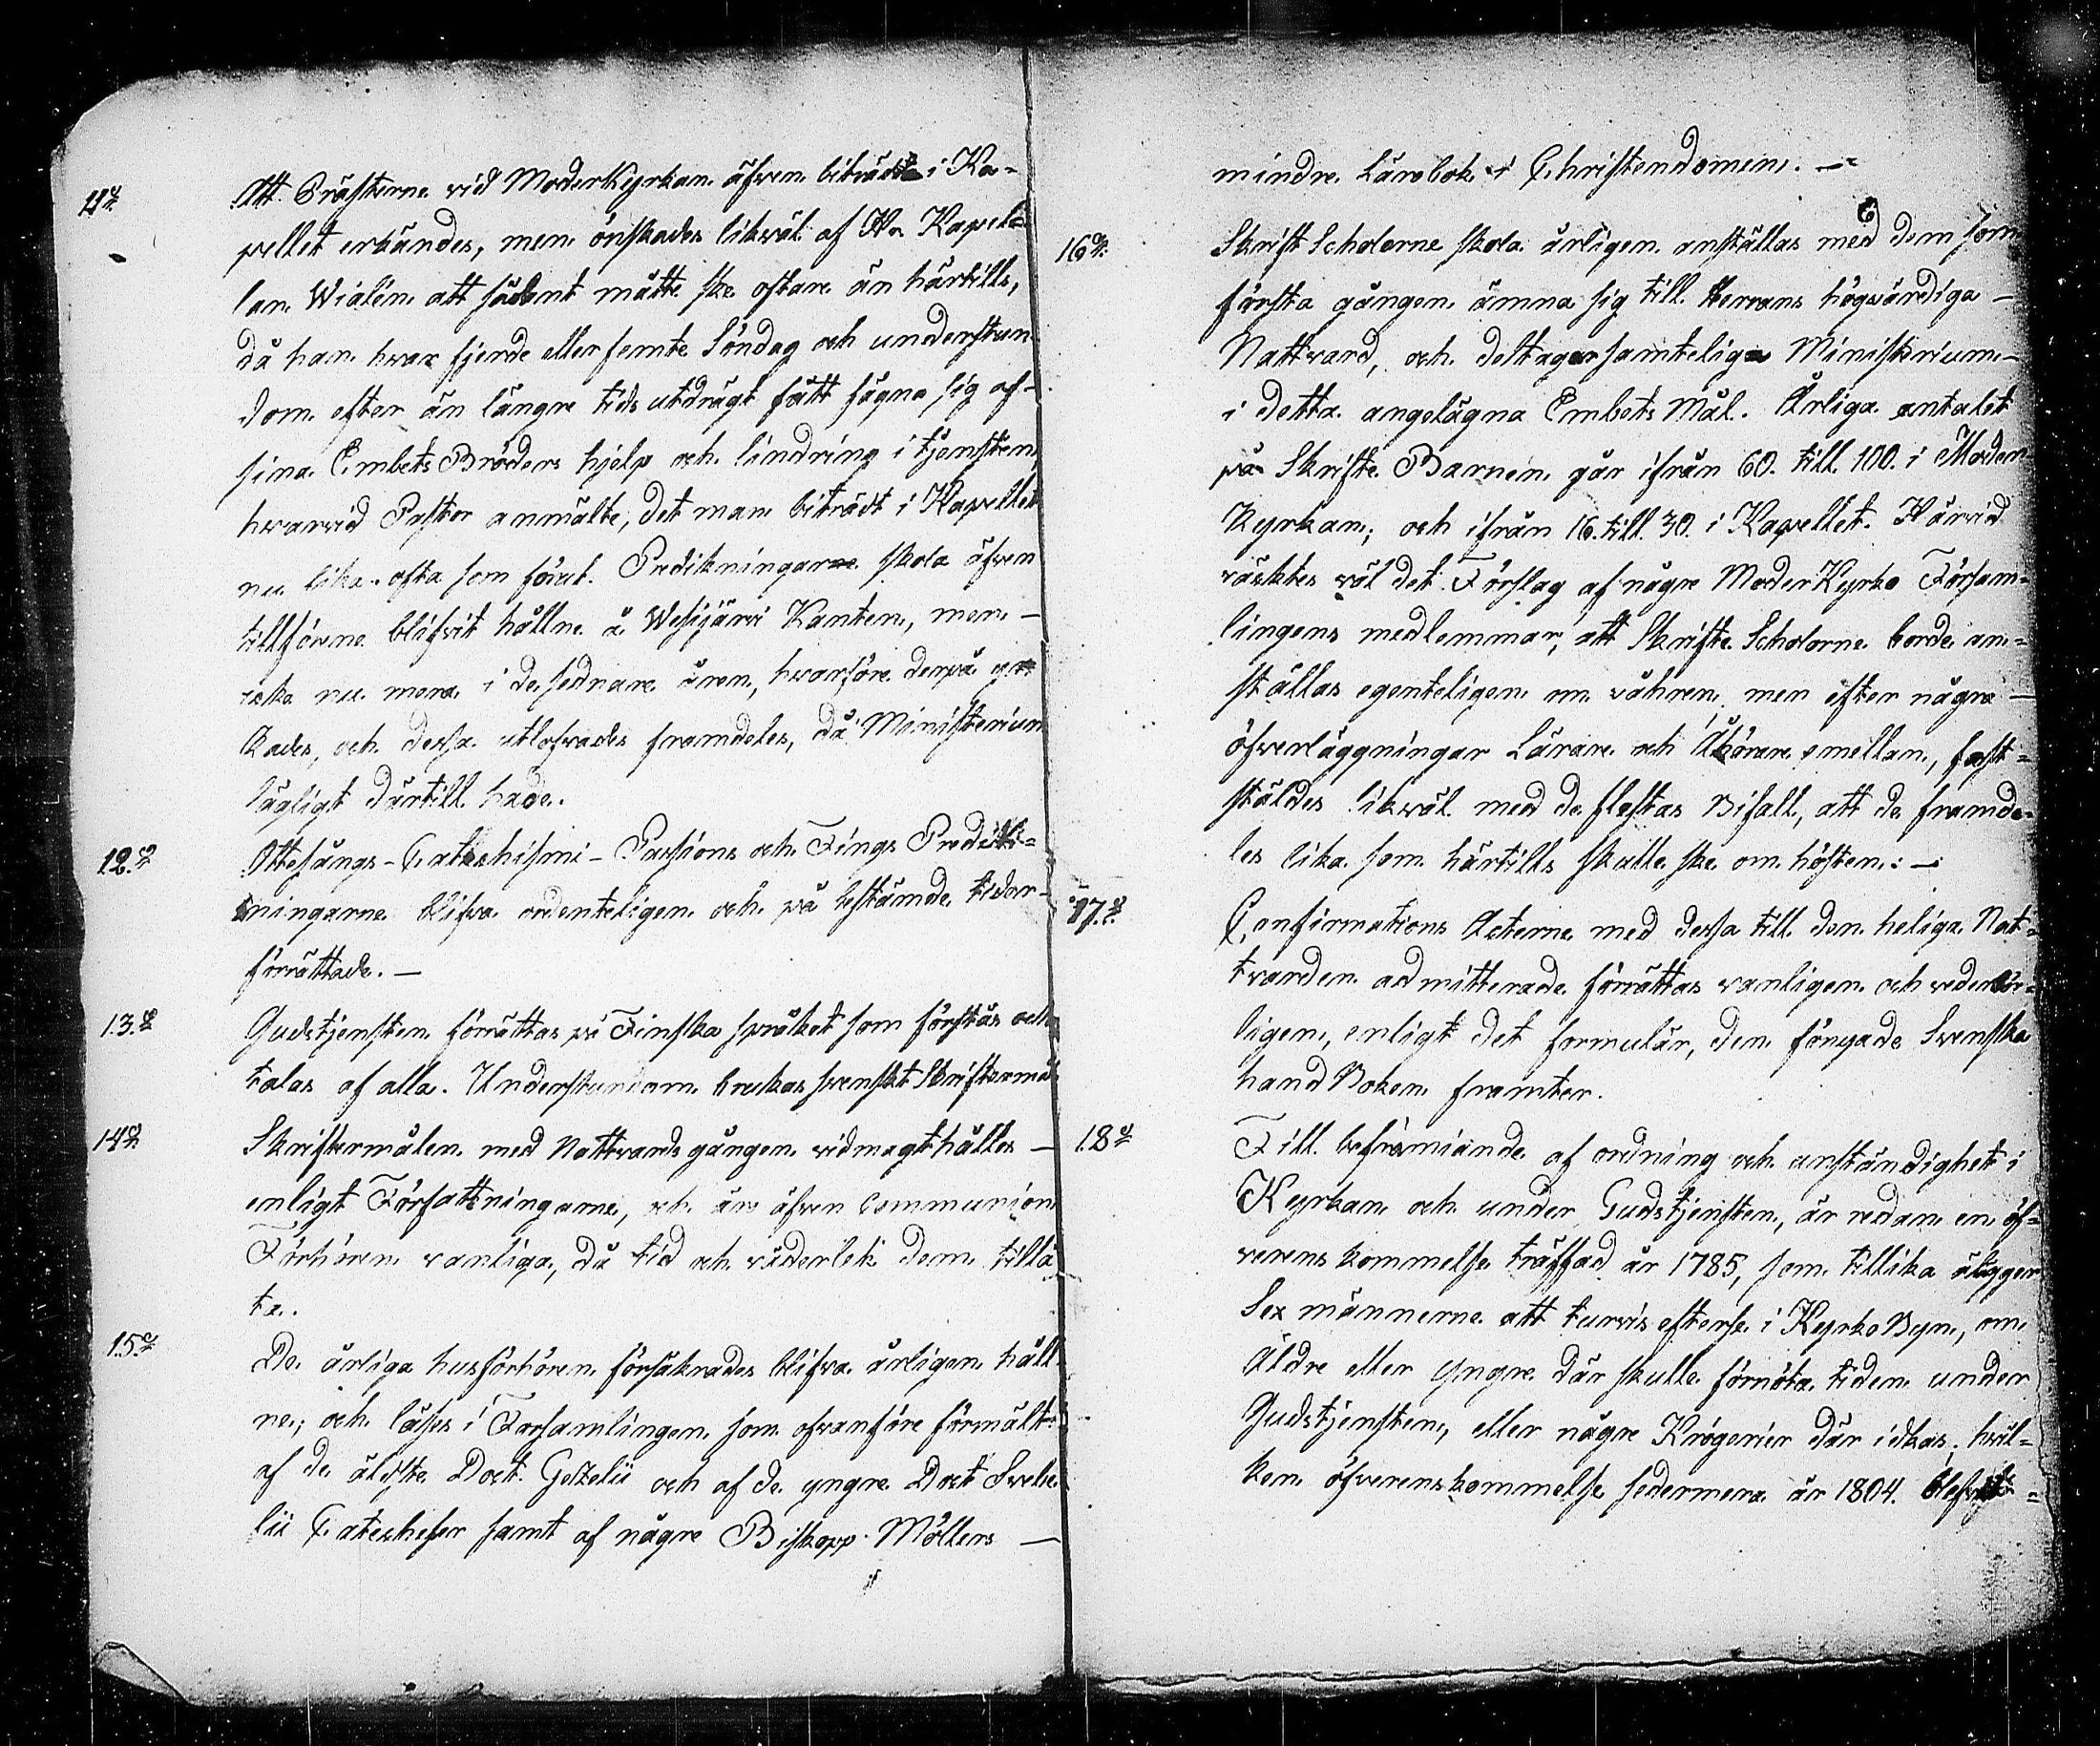 11.
Att Prästerne vid Moderkyrkan äfven biträdt i Ka-
pellet erkändes, men önskades likväl af Hr Kapel-
lan Wialén att sådant måtte ske oftare än härtills,
då han hvar fjerde eller femte Söndag och understun
dom efter än längre tids utdrägt fått fägna sig af
sina Embets Bröders hjelp och lindring i tjensten
hvarvid Pastor anmälte, det man biträdt i Kapellet
nu lika ofta som förut. Predikningarne skola äfven
tillförene blifvit hållne å Wesijärvi Kanten, men -
icke nu mera i de sednare åren, hvarföre derpå yr
kades, och dessa utlofvades framdeles, då Ministerium
lägligt därtill hade.
12.
Ottesångs- Catechismi- Passions och Tings Predik-
ningarne blifva ordenteligen och på bestämde tider
förrättade. -
13.
Gudstjensten förrättas på Finska språket som förstås och
talas af alla. Understundom brukas svenskt Skriftermål
14.
Skriftermålen med Nattvardsgången vidmagthålles -
enligt Författningarne, och äro äfven Communion
Förhören vanliga, då tid och väderlek dem tillå
ta.
15.
De årliga husförhören försäkrades blifva årligen håll
ne; och läses i Församlingen som ofvanföre förmält
af de äldste Doct. Gezelii och af de yngre Doct Svebe
lii Catecheser samt af några Biskopp Möllers -
mindre Lärobok i Christendomen. -
16.
Skrift Scholorne skola årligen anställas med dem som
första gången ämna sig till Herrans högvärdiga -
Nattvard, och deltager samtelige Ministerium -
i detta angelägna Embets Mål. Årliga antalet
på Skrifte Barnen går ifrån 60. till 100. i Moder
Kyrkan; och ifrån 16. till 30. i Kapellet. Härvid
väcktes väl det Förslag af någre Moder Kyrko Försam-
lingens medlemmar, att Skrifte Scholorne borde an-
ställas egenteligen om våhren, men efter några -
öfverläggningar Lärare och Åhörare emellan, fast-
stäldes likväl med de flestas Bifall, att de framde-
les lika som härtills skulle ske om hösten: -
17.
Confirmations Acterne med dessa till den heliga Nat-
tvarden admitterade förrättas vanligen och vederbör-
ligen, enligt det formulär, den förnyade Svenska
hand Boken framter.
18.
Till befrämiande af ordning och anständighet i
Kyrkan och under Gudstjensten, är redan en öf-
verens kommelse träffad år 1785, som tillika ålägger
Sex männerne att turvis efterse i Kyrko Byn, om
Äldre eller yngre där skulle förnöta tiden under
Gudstjensten, eller någre Krögerier där idkas; hvil-
ken öfverenskommelse sedermera år 1804. blef